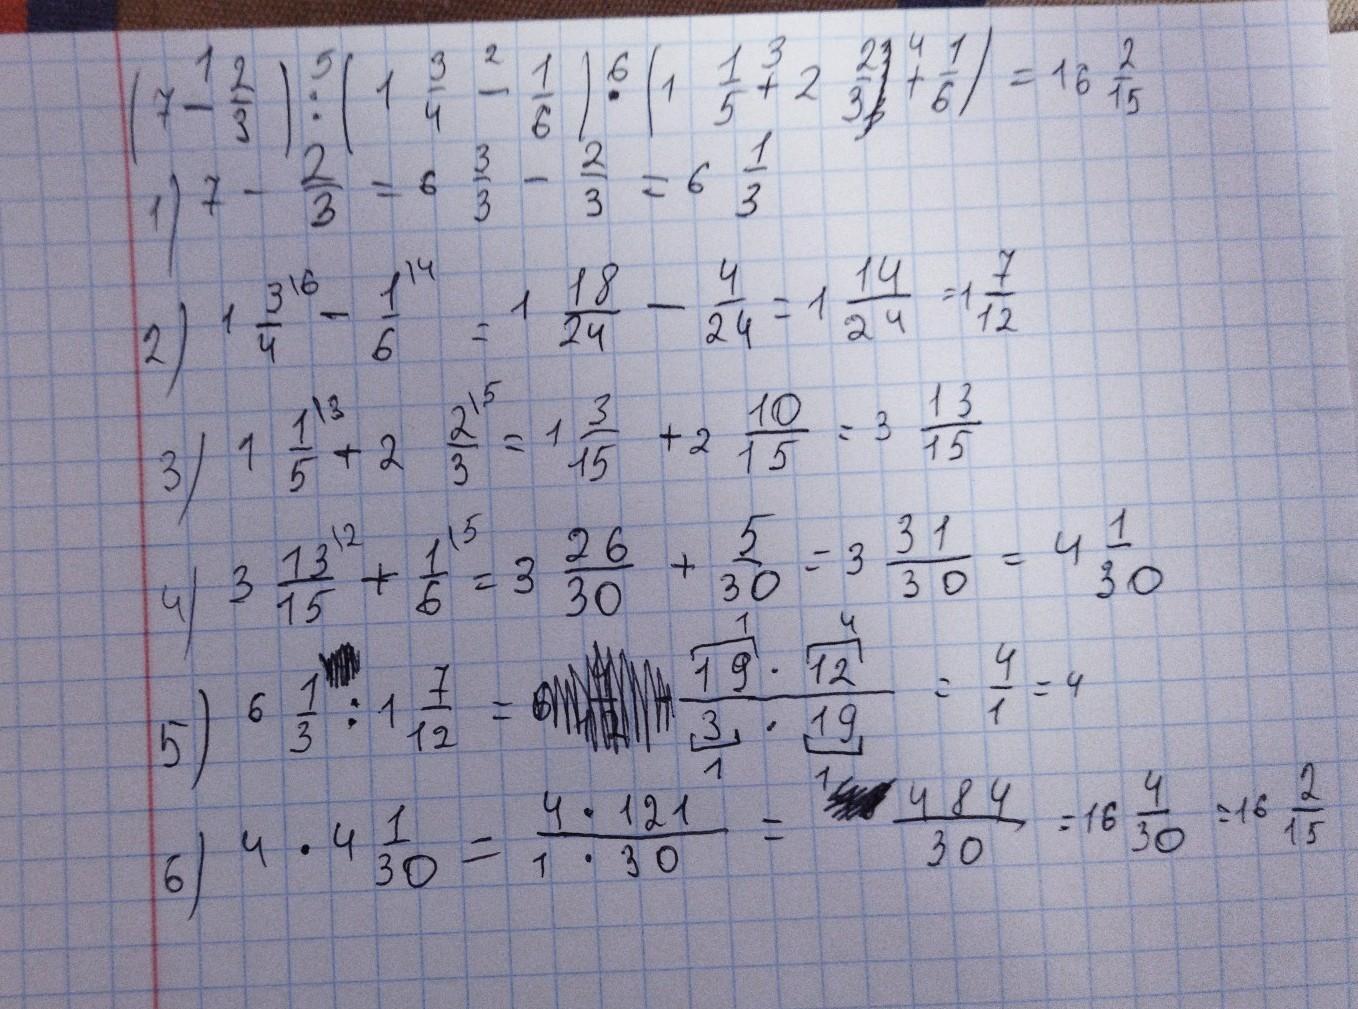 (7 - 2/3) : (1 3/4 - 1/6) · (1 1/5 + 2 2/3 + 1/6) = 16 2/15
1) 7 - 2/3 = 6 3/3 - 2/3 = 6 1/3
2) 1 3/4 \6 - 1/6 \4 = 1 18/24 - 4/24 = 1 14/24 = 1 7/12
3) 1 1/5 \3 + 2 2/3 \5 = 1 3/15 + 2 10/15 = 3 13/15
4) 3 13/15 \2 + 1/6 \5 = 3 26/30 + 5/30 = 3 31/30 = 4 1/30
5) 6 1/3 : 1 7/12 = 19 · 12 / 3 · 19 = 4/1 = 4
6) 4 · 4 1/30 = 4 · 121 / 1 · 30 = 484/30 = 16 4/30 = 16 2/15